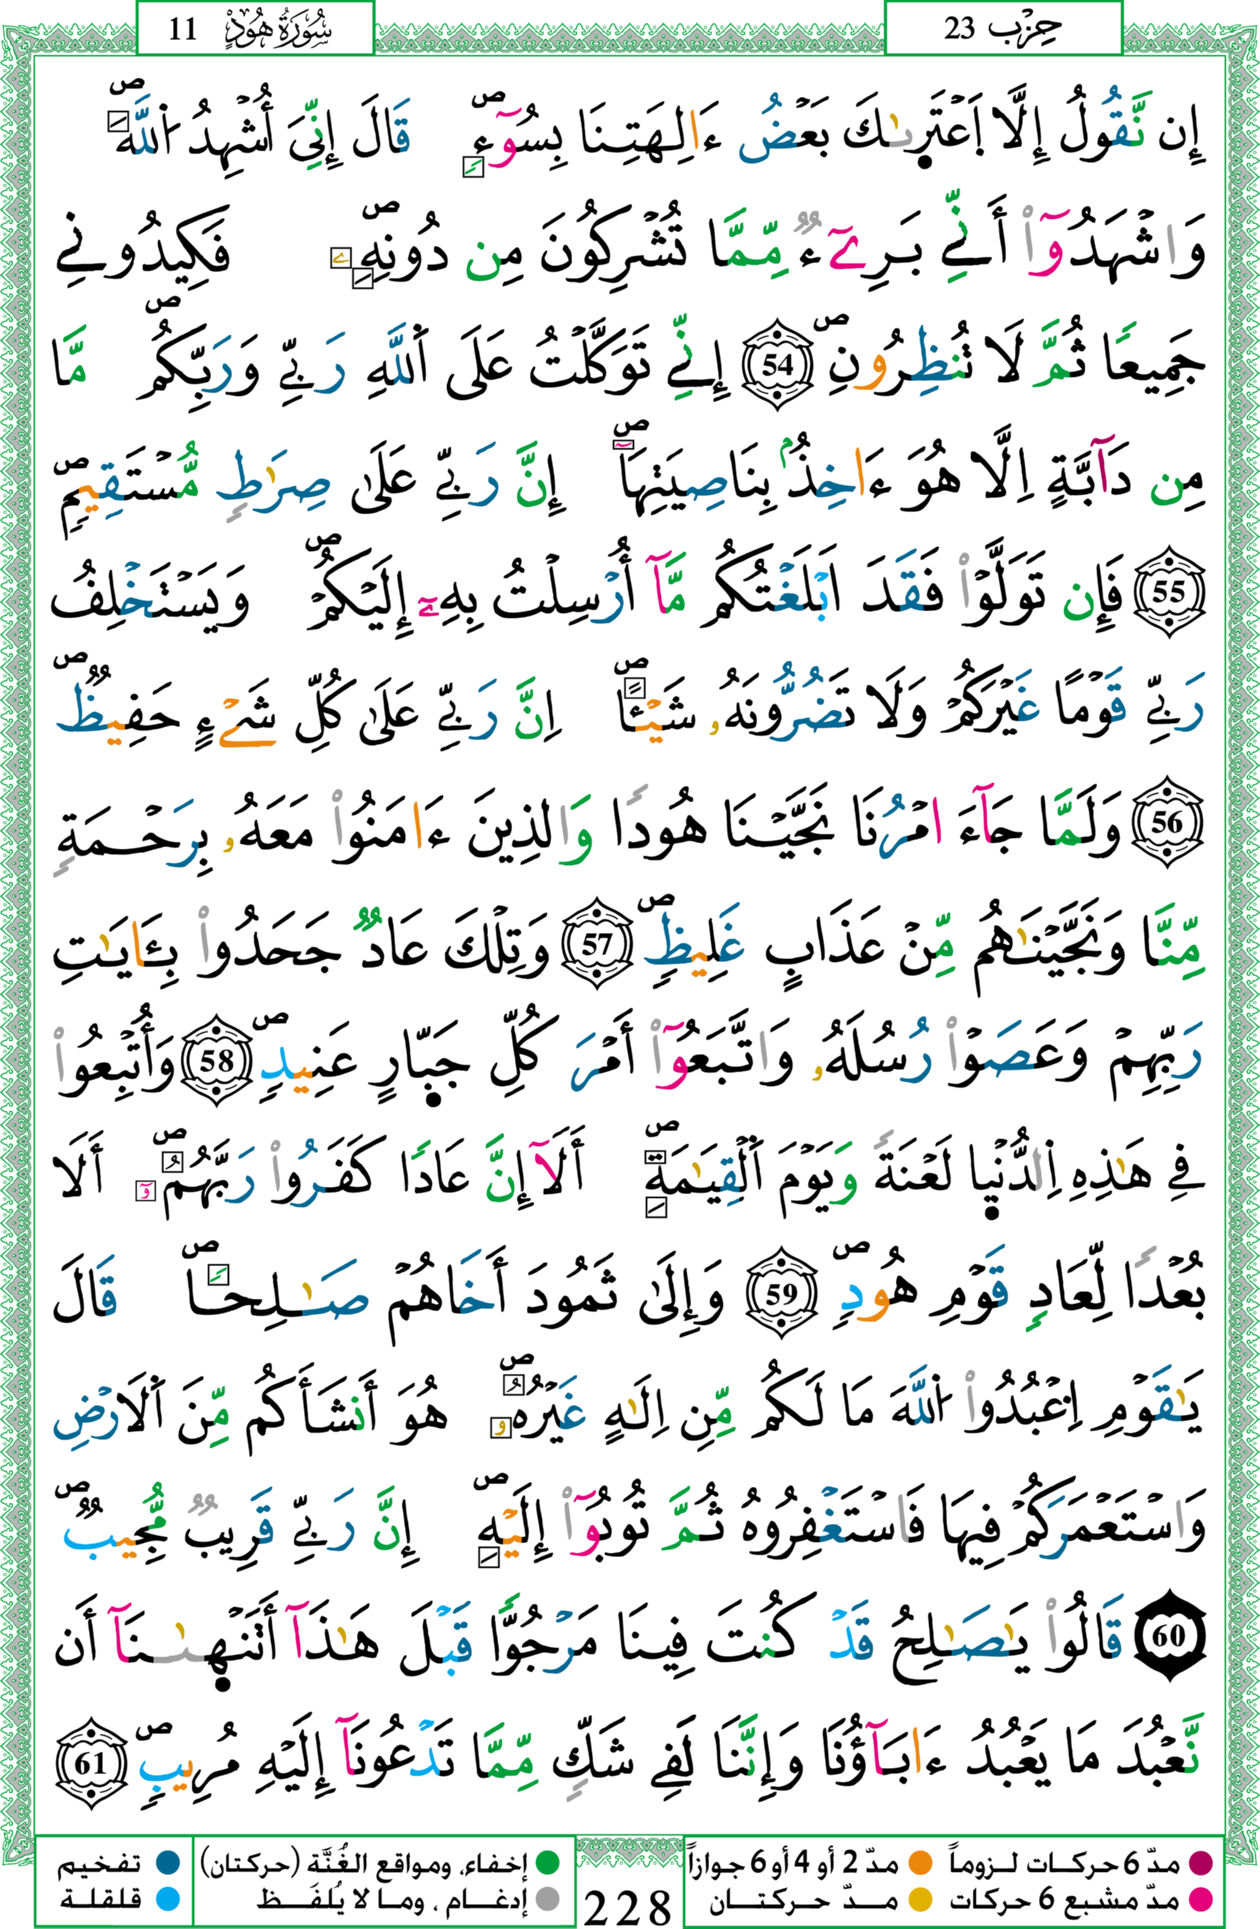 سُورَةُ هُودٍ 11
حِزْب 23
إِن نَّقُولُ إِلَّا اَعْتَر۪ىٰكَ بَعْضُ ءَالِهَتِنَا بِسُوٓءٍۖ قَالَ إِنِّيَ أُشْهِدُ اُللَّهَۖ
وَاشْهَدُوٓاْ أَنِّے بَرِےٓءٞ مِّمَّا تُشْرِكُونَ مِن دُونِهِۦۖ فَكِيدُونِے
جَمِيعاً ثُمَّ لَا تُنظِرُونِۖ 54 إِنِّے تَوَكَّلْتُ عَلَى اَللَّهِ رَبِّے وَرَبِّكُمۖ مَّا
مِن دَآبَّةٍ اِلَّا هُوَ ءَاخِذُۢ بِنَاصِيَتِهَآۖ إِنَّ رَبِّے عَلَىٰ صِرَٰطٖ مُّسْتَقِيمٖۖ
55 فَإِن تَوَلَّوْاْ فَقَدَ اَبْلَغْتُكُم مَّآ أُرْسِلْتُ بِهِۦٓ إِلَيْكُمْۖ وَيَسْتَخْلِفُ
رَبِّے قَوْماً غَيْرَكُمْ وَلَا تَضُرُّونَهُۥ شَيْـٔاًۖ اِنَّ رَبِّے عَلَىٰ كُلِّ شَےْءٍ حَفِيظٞۖ
56 وَلَمَّا جَآءَ امْرُنَا نَجَّيْنَا هُوداٗ وَالذِينَ ءَامَنُواْ مَعَهُۥ بِرَحْمَةٖ
مِّنَّا وَنَجَّيْنَٰهُم مِّنْ عَذَابٍ غَلِيظٖۖ 57 وَتِلْكَ عَادٞ جَحَدُواْ بِـَٔايَٰتِ
رَبِّهِمْ وَعَصَوْاْ رُسُلَهُۥ وَاتَّبَعُوٓاْ أَمْرَ كُلِّ جَبّ۪ارٍ عَنِيدٖۖ 58 وَأُتْبِعُواْ
فِے هَٰذِهِ اِلدُّنْي۪ا لَعْنَةٗ وَيَوْمَ اَلْقِيَٰمَةِۖ أَلَآ إِنَّ عَاداٗ كَفَرُواْ رَبَّهُمُۥٓۖ أَلَا
بُعْداٗ لِّعَادٖ قَوْمِ هُودٖۖ 59 وَإِلَىٰ ثَمُودَ أَخَاهُمْ صَٰلِحاٗۖ قَالَ
يَٰقَوْمِ اِعْبُدُواْ اُللَّهَ مَا لَكُم مِّنِ اِلَٰهٍ غَيْرُهُۥۖ هُوَ أَنشَأَكُم مِّنَ اَلَارْضِ
وَاسْتَعْمَرَكُمْ فِيهَا فَاسْتَغْفِرُوهُ ثُمَّ تُوبُوٓاْ إِلَيْهِۖ إِنَّ رَبِّے قَرِيبٞ مُّجِيبٞۖ
60 قَالُواْ يَٰصَٰلِحُ قَدْ كُنتَ فِينَا مَرْجُوّاٗ قَبْلَ هَٰذَآ أَتَنْه۪ىٰنَآ أَن
نَّعْبُدَ مَا يَعْبُدُ ءَابَآؤُنَا وَإِنَّنَا لَفِے شَكّٖ مِّمَّا تَدْعُونَآ إِلَيْهِ مُرِيبٖۖ 61
مدّ 6 حركات لـزوماً مدّ 2 أو 4 أو 6 جوازاً
مدّ مشبع 6 حركات مـدّ حركتـان
228
إخفاء، ومواقع الغُنَّة (حركتان) تفخيم
إدغـام ، ومـا لا يُلفَـظ قلقلـة